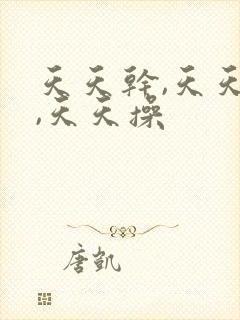 天天幹,天天
,天天操
唐凱